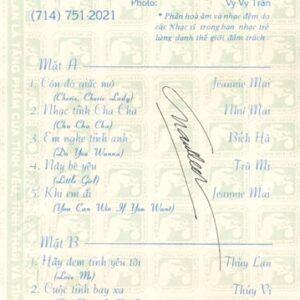 Photo: Vy Vy Trần
(714) 751-2021
* Phần hoà âm và nhạc đệm do
các Nhạc sĩ trong ban nhạc trẻ
lừng danh thế giới đảm trách
Mặt A
1. Còn đó giấc mơ Jeannie Mai
(Cherie, Cherie Lady)
2. Nhạc tình Cha Cha Như Mai
(Cha Cha Cha)
3. Em nghe tình anh Bích Hà
(Do You Wanna)
4. Này bé yêu Trà Mi
(Little Girl)
5. Khi em đi Jeannie Mai
(You Can Win If You Want)
Mặt B
1. Hãy đem tình yêu tới Thúy Lan
(Love Me)
2. Cuộc tình bay xa Thúy Vi